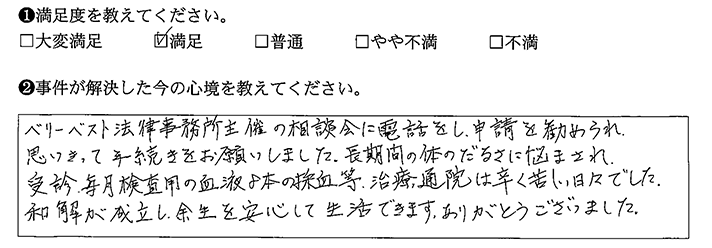 ❶満足度を教えてください。
□大変満足 ☑満足 □普通 □やや不満 □不満
❷事件が解決した今の心境を教えてください。
ベリーベスト法律事務所主催の相談会に電話をし、申請を勧められ、
思いきって手続きをお願いしました。長期間の体のだるさに悩まされ、
受診、毎月検査用の血液4本の採血等、治療、通院は辛く苦しい日々でした。
和解が成立し、余生を安心して生活できます。ありがとうございました。